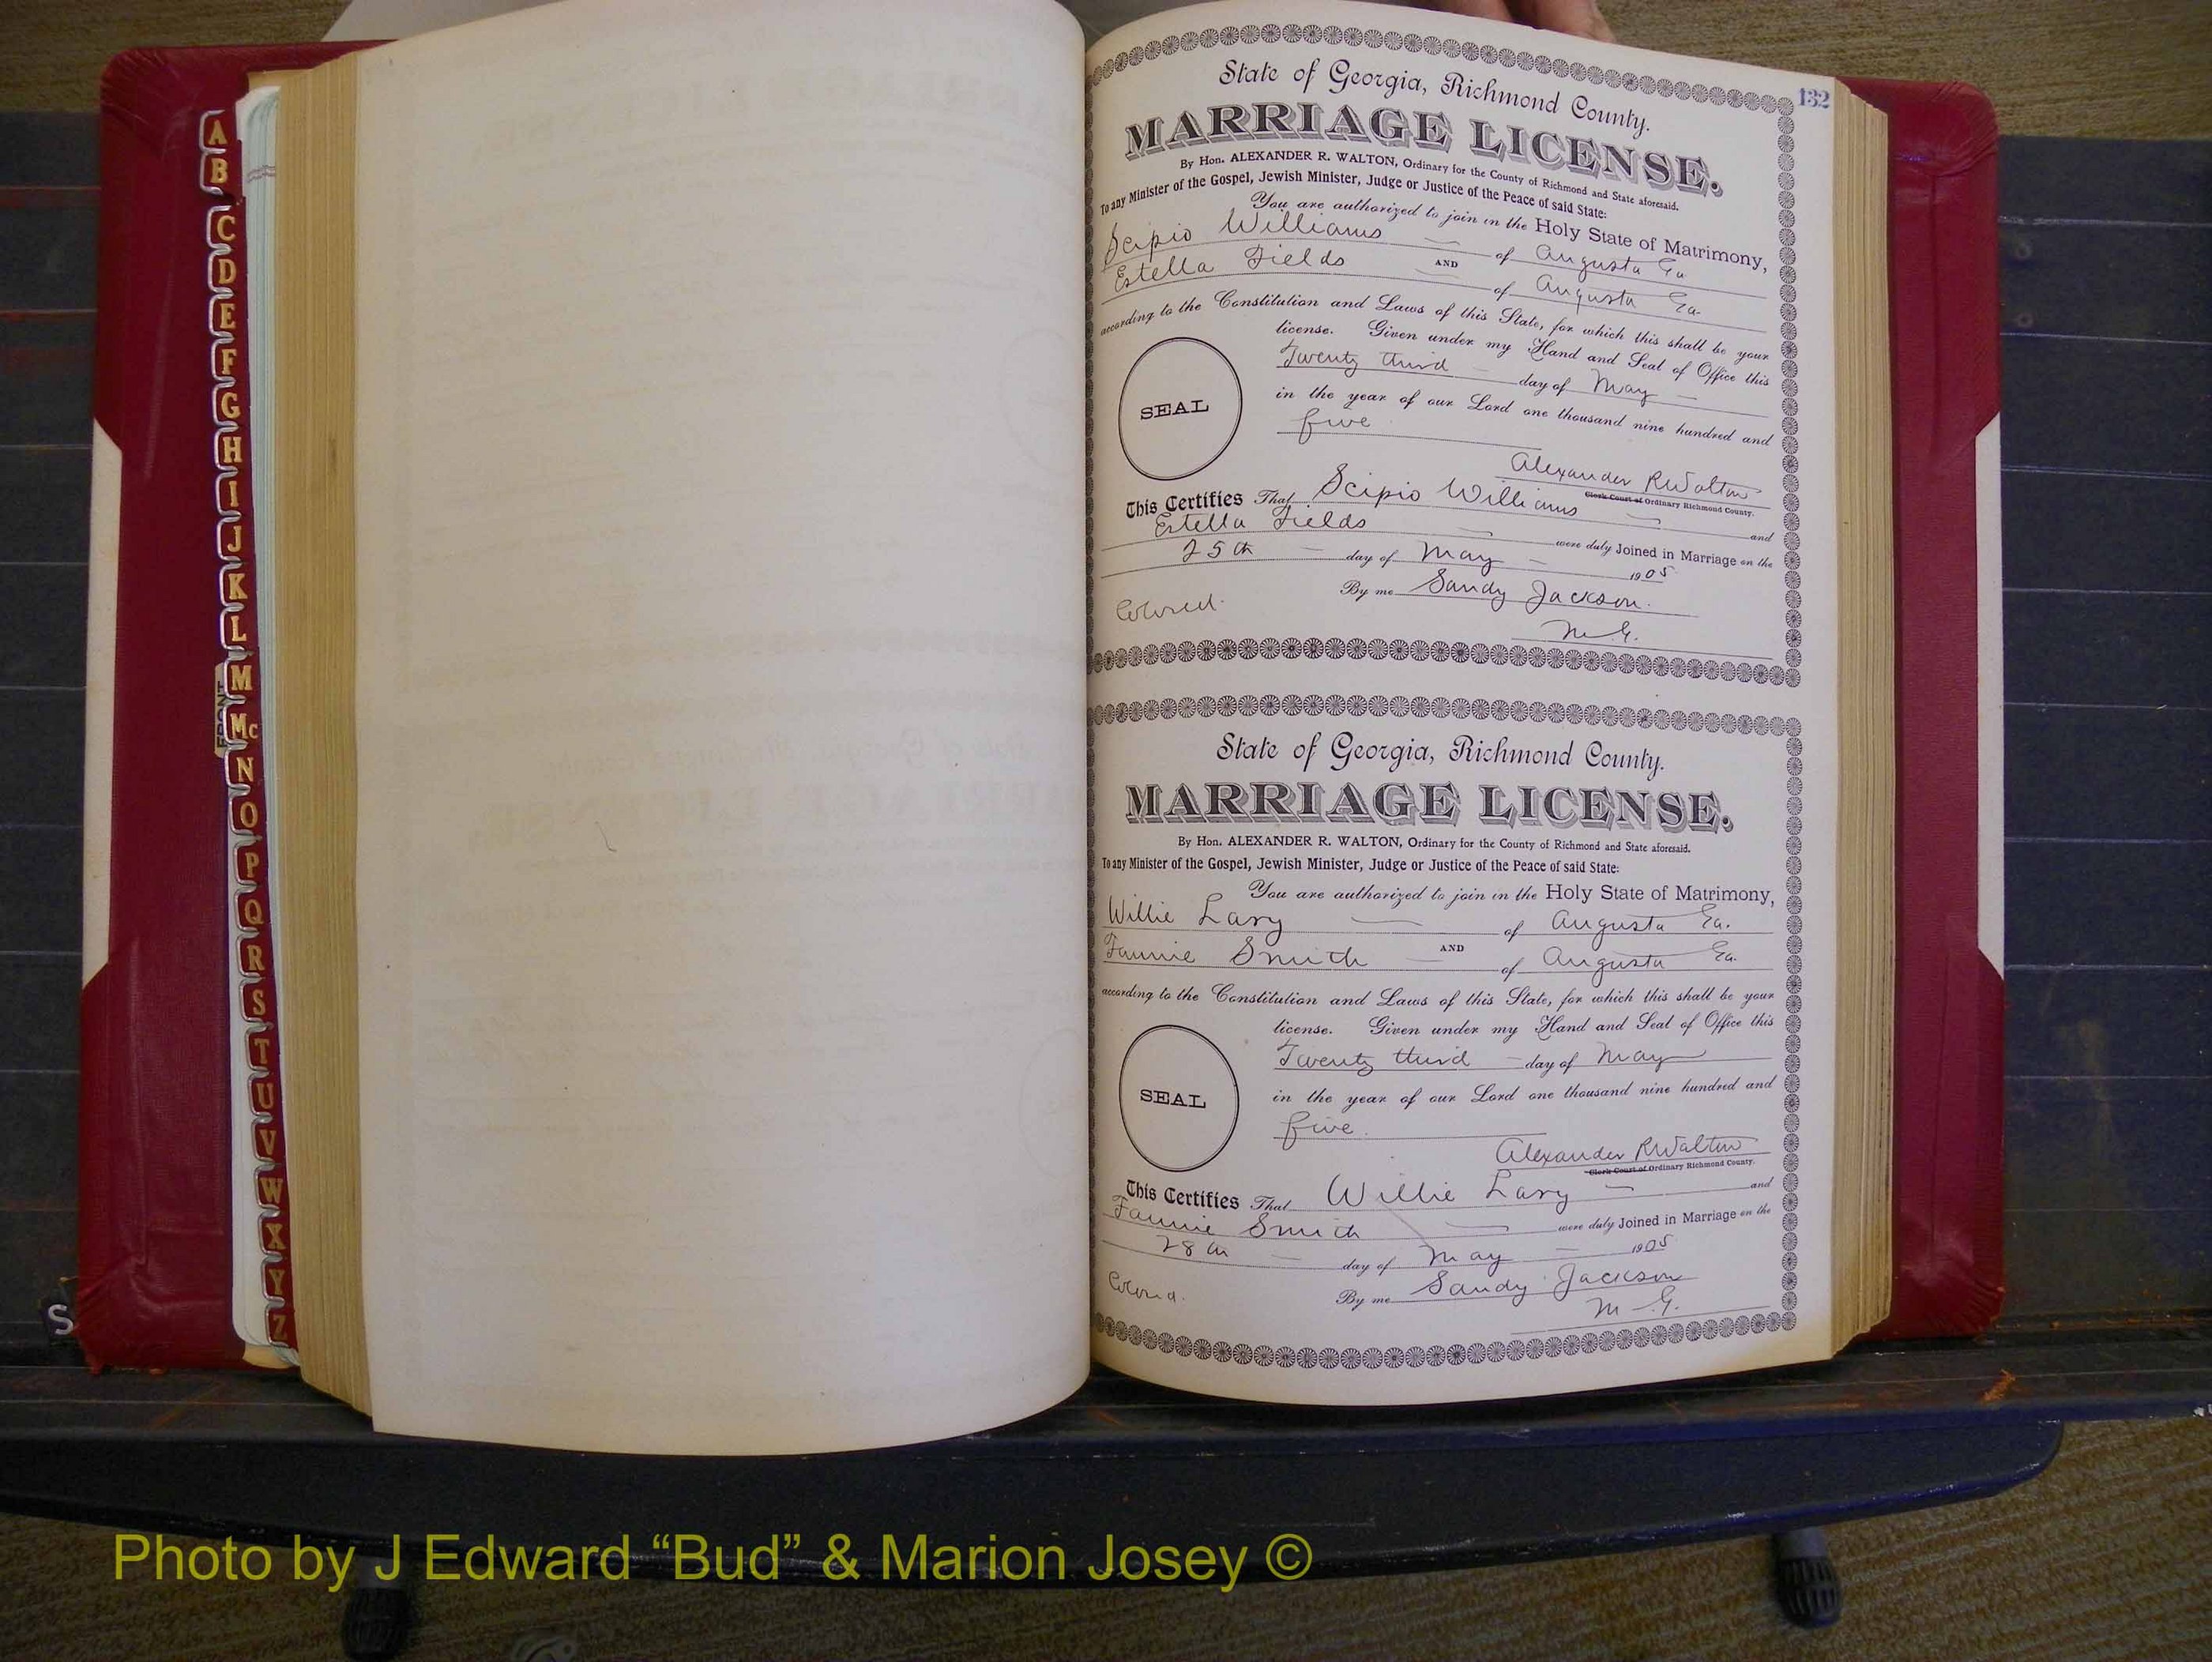 A
B
C
D
E
F
G
H
I
J
K
L
M
Mc
N
O
P
Q
R
S
T
U
V
W
X
Y
Z
132
State of Georgia, Richmond County.
MARRIAGE LICENSE.
By Hon. ALEXANDER R. WALTON, Ordinary for the County of Richmond and State aforesaid.
To any Minister of the Gospel, Jewish Minister, Judge or Justice of the Peace of said State:
You are authorized to join in the Holy State of Matrimony,
Scipio Williams of Augusta Ga
AND
Estella Fields of Augusta Ga.
according to the Constitution and Laws of this State, for which this shall be your
license. Given under my Hand and Seal of Office this
Twenty third day of May
in the year of our Lord one thousand nine hundred and
five
SEAL
Alexander R Walton
Clerk Court of Ordinary Richmond County.
This Certifies That Scipio Williams and
Estella Fields were duly Joined in Marriage on the
25th day of May 1905
By me Sandy Jackson.
Colored.
M.G.
State of Georgia, Richmond County.
MARRIAGE LICENSE.
By Hon. ALEXANDER R. WALTON, Ordinary for the County of Richmond and State aforesaid.
To any Minister of the Gospel, Jewish Minister, Judge or Justice of the Peace of said State:
You are authorized to join in the Holy State of Matrimony,
Willie Lary of Augusta Ga.
AND
Fannie Smith of Augusta Ga.
according to the Constitution and Laws of this State, for which this shall be your
license. Given under my Hand and Seal of Office this
Twenty third day of May
in the year of our Lord one thousand nine hundred and
five.
SEAL
Alexander R Walton
Clerk Court of Ordinary Richmond County.
This Certifies That Willie Lary and
Fannie Smith were duly Joined in Marriage on the
28th day of May 1905
By me Sandy Jackson
Colored.
M.G.
S
Photo by J Edward “Bud” & Marion Josey ©